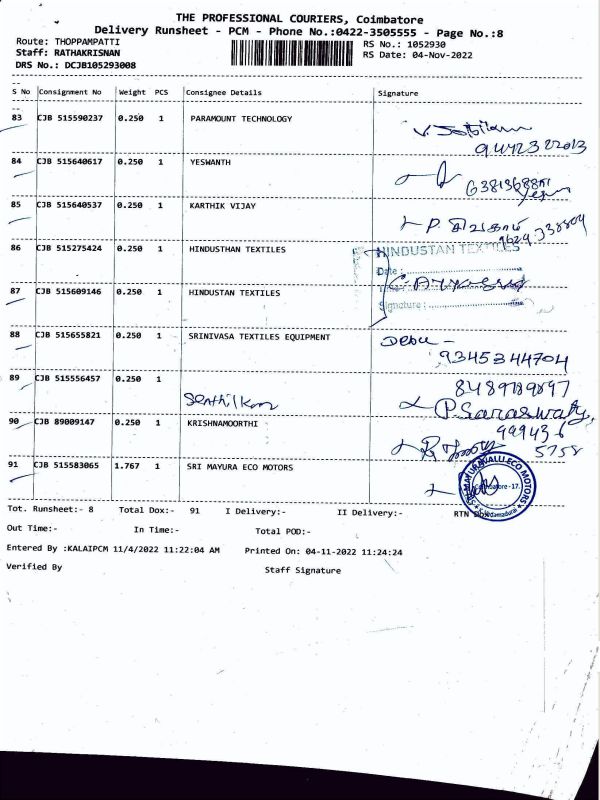 THE PROFESSIONAL COURIERS, Coimbatore
Delivery Runsheet - PCM - Phone No.:0422-3505555 - Page No.:8
Route: THOPPAMPATTI RS No.: 1052930
Staff: RATHAKRISNAN RS Date: 04-Nov-2022
DRS No.: DCJB105293008
S No Consignment No Weight PCS Consignee Details Signature
83 CJB 515590237 0.250 1 PARAMOUNT TECHNOLOGY
84 CJB 515640617 0.250 1 YESWANTH
85 CJB 515640537 0.250 1 KARTHIK VIJAY
86 CJB 515275424 0.250 1 HINDUSTHAN TEXTILES HINDUSTAN TEXTILES
Date :
87 CJB 515609146 0.250 1 HINDUSTAN TEXTILES
Signature :
88 CJB 515655821 0.250 1 SRINIVASA TEXTILES EQUIPMENT Debu -
9345344704
89 CJB 515556457 0.250 1 8489789897
P. Saraswathy,
90 CJB 89009147 0.250 1 KRISHNAMOORTHI 999436
5758
91 CJB 515583065 1.767 1 SRI MAYURA ECO MOTORS
Tot. Runsheet:- 8 Total Dox:- 91 I Delivery:- II Delivery:- RTN Dox:-
Out Time:- In Time:- Total POD:-
Entered By :KALAIPCM 11/4/2022 11:22:04 AM Printed On: 04-11-2022 11:24:24
Verified By Staff Signature